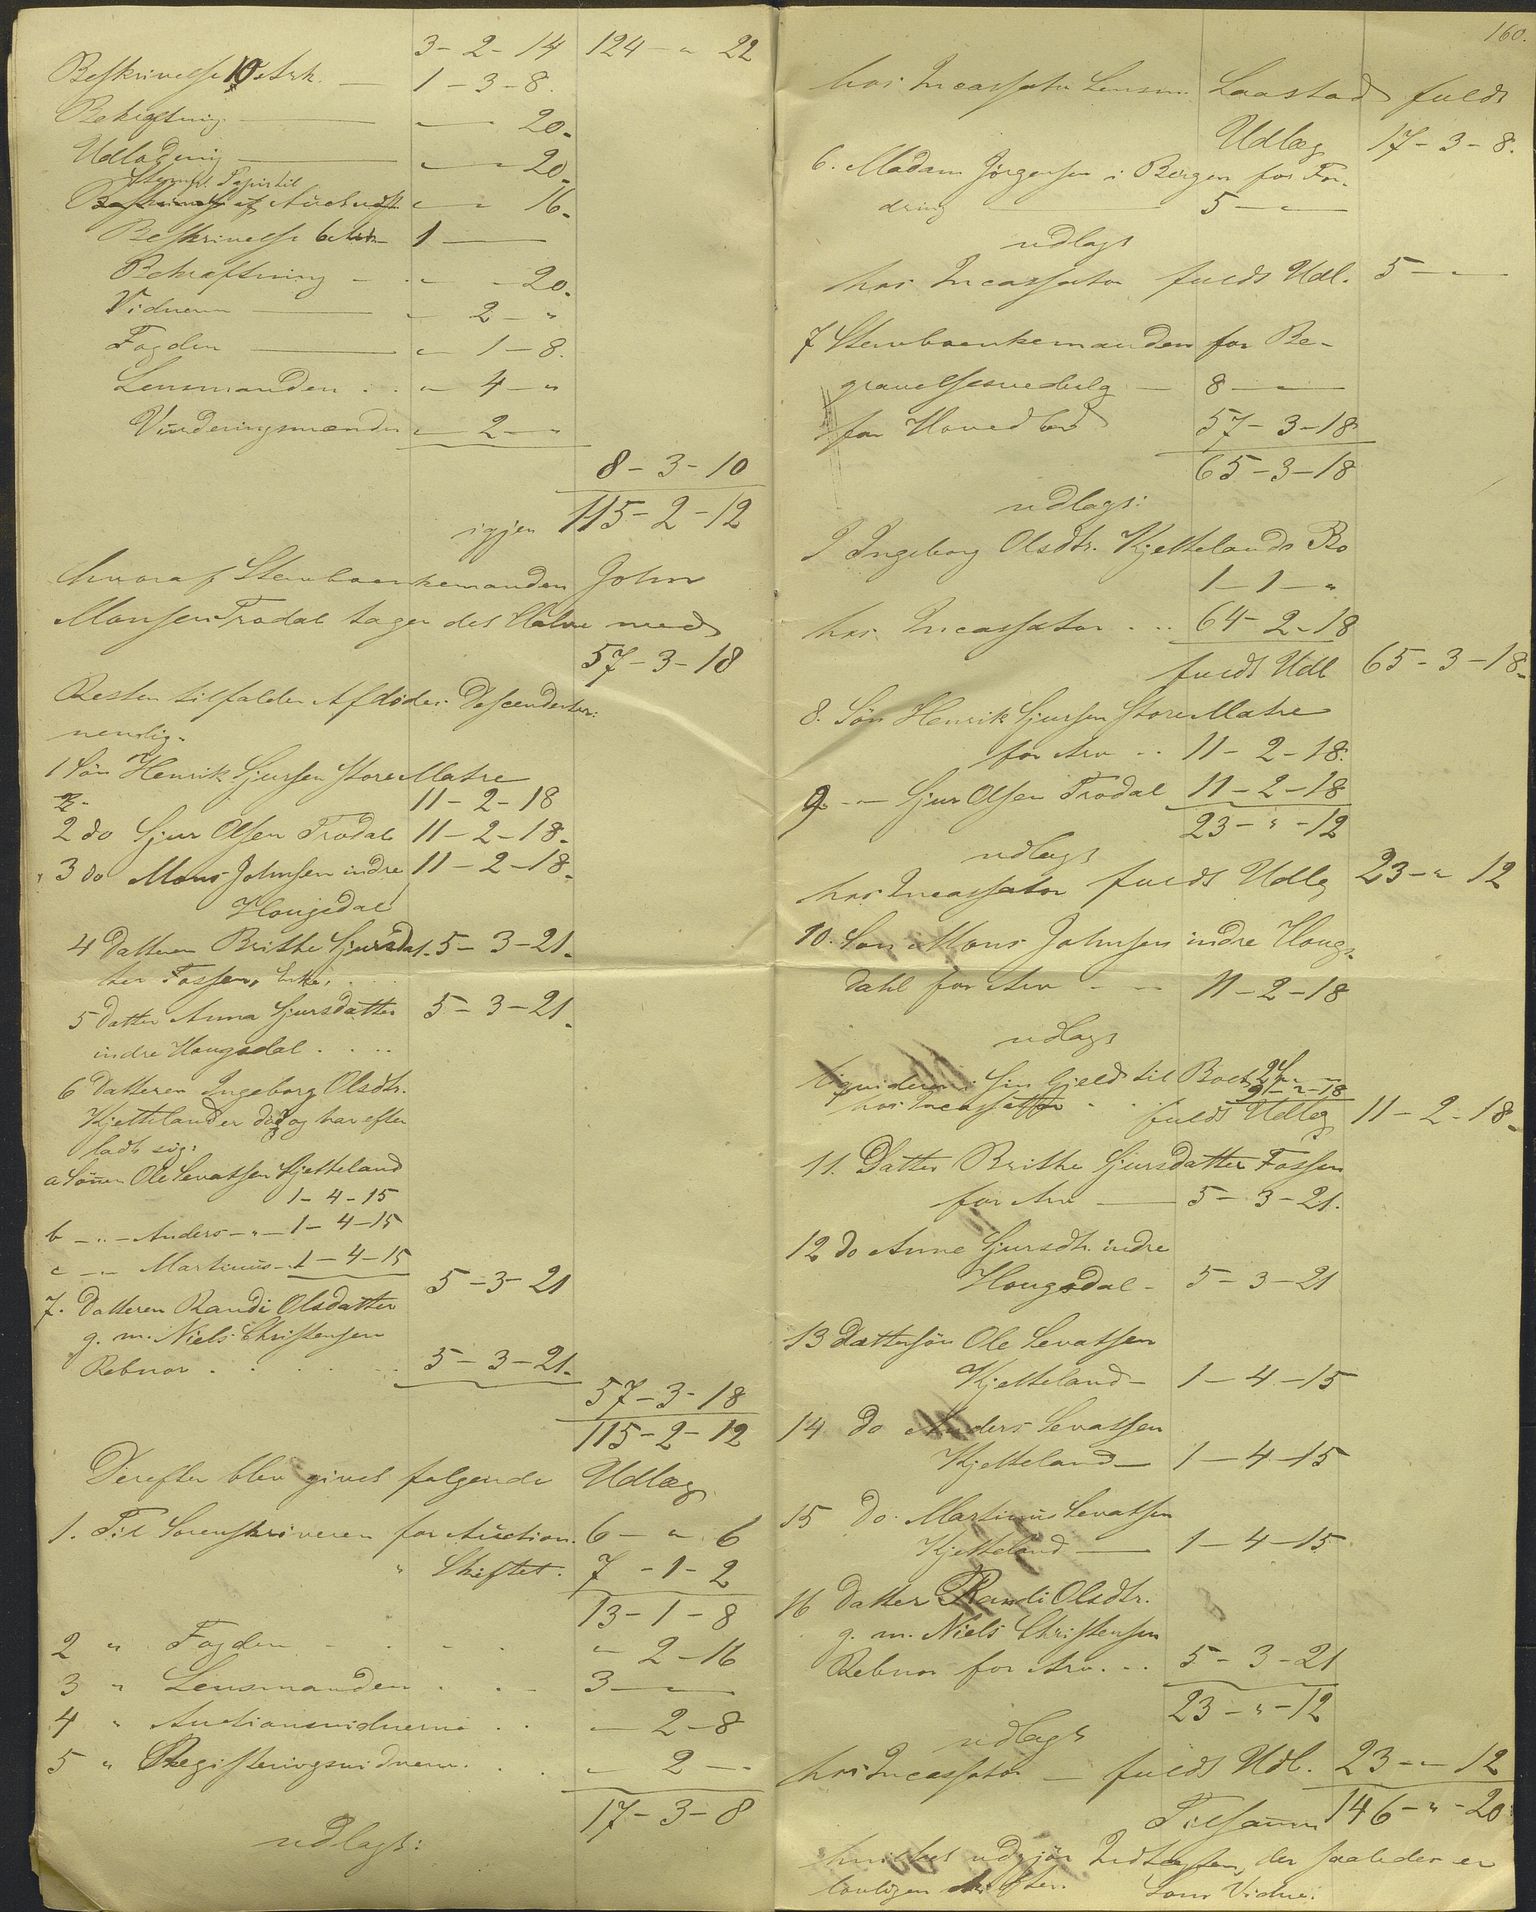 3 - 2 - 14 124 - " 22
Beskrivelse 10 Ark. — 1 - 3 - 8.
Bekræftning — " — 20.
Udlodning — " — 20.
Stempl. Papir til
" " 16.
Beskrivelse 6 Ark 1 —
Bekræftning - " - 20.
Vidnerne — " 2 - "
Fogden — " 1 - 8.
Lensmanden . . " 4 - "
Vurderingsmænden " 2 - "
8 - 3 - 10
igjen 115 - 2 - 12
hvoraf Stervboenkemanden John
Monsen Trodal tager det Halve med
57 - 3 - 18
Resten tilfalder Afdødes Descendenter:
nemlig.
1 Søn Henrik Gjursen Store Matre
11 - 2 - 18
2 do Gjur Olsen Trodal 11 - 2 - 18.
3 do Mons Johnsen indre 11 - 2 - 18.
Hougsdal
4 Datteren Brithe Gjursdat- 5 - 3 - 21.
ter Fossen, Enke, . . .
5 Datter Anna Gjursdatter 5 - 3 - 21.
indre Hougsdal . . . .
6 Datteren Ingeborg Olsdtr.
Kjetteland er død og har efter
ladt sig:
a Sönnen Ole Sevatsen Kjetteland
1 - 4 - 15
b - " - Anders - " - 1 - 4 - 15
c - " - Martinus - 1 - 4 - 15
5 - 3 - 21
7. Datteren Randi Olsdatter
g. m. Niels Christensen
Rebnor . . . . . 5 - 3 - 21.
57 - 3 - 18
115 - 2 - 12
Derefter blev givet følgende Udlæg
1. Til Sorenskriveren for Auction. 6 - " 6
" Skiftet. 7 - 1 - 2
13 - 1 - 8
2 " Fogden - - - - " 2 - 16
3 " Lensmanden . . - 3 —
4 " Auctionsvidnerne . . — 2 - 8
5 " Registeringsvidnerne . . . - 2 - "
17 - 3 - 8
udlagt:
160.
hos Incassator Lensm. Laastad fuldt
Udlæg 17 - 3 - 8.
6. Madam Jørgensen i Bergen for For-
dring — 5 — "
udlagt
hos Incassator fuldt Udl. 5 - " -
7 Stervboenkemanden for Be-
gravelsesvederlag — 8 — "
for Hovedlod 57 - 3 - 18
65 - 3 - 18
udlagt:
I Ingeborg Olsdtr. Kjettelands Bo
1 - 1 - "
hos Incassator . . . 64 - 2 - 18
fuldt Udl 65 - 3 - 18.
8. Søn Henrik Gjursen Store Matre
for Arv . . 11 - 2 - 18.
9 - " - Gjur Olsen Trodal 11 - 2 - 18
23 - " - 12
udlagt
hos Incassator fuldt Udlg 23 - " 12
10. Søn Mons Johnsen indre Hougs-
dahl for Arv - - - 11 - 2 - 18
udlagt
Liqviderer i sin Gjeld til Boet 2
hos Incassator . . 9 - " - 18
fuldt Udlæg 11 - 2 - 18.
11. Datter Brithe Gjursdatter Fossen
for Arv — 5 - 3 - 21.
12 do Anne Gjursdtr. indre
Hougsdal - 5 - 3 - 21
13 Dattersön Ole Sevatsen
Kjetteland - 1 - 4 - 15
14 do Anders Sevatsen
Kjetteland — 1 - 4 - 15
15 do. Martinus Sevatsen
Kjetteland — 1 - 4 - 15
16 Datter Randi Olsdtr.
g. m. Niels Christensen
Rebnor for Arv. . . 5 - 3 - 21
23 - " - 12
udlagt
hos Incassator — fuldt Udl. 23 - " 12
Tilsamm 146 - " - 20
hvilket udgjør Indtægten, der saaledes er
lovligen skiftet. Som Vidne: